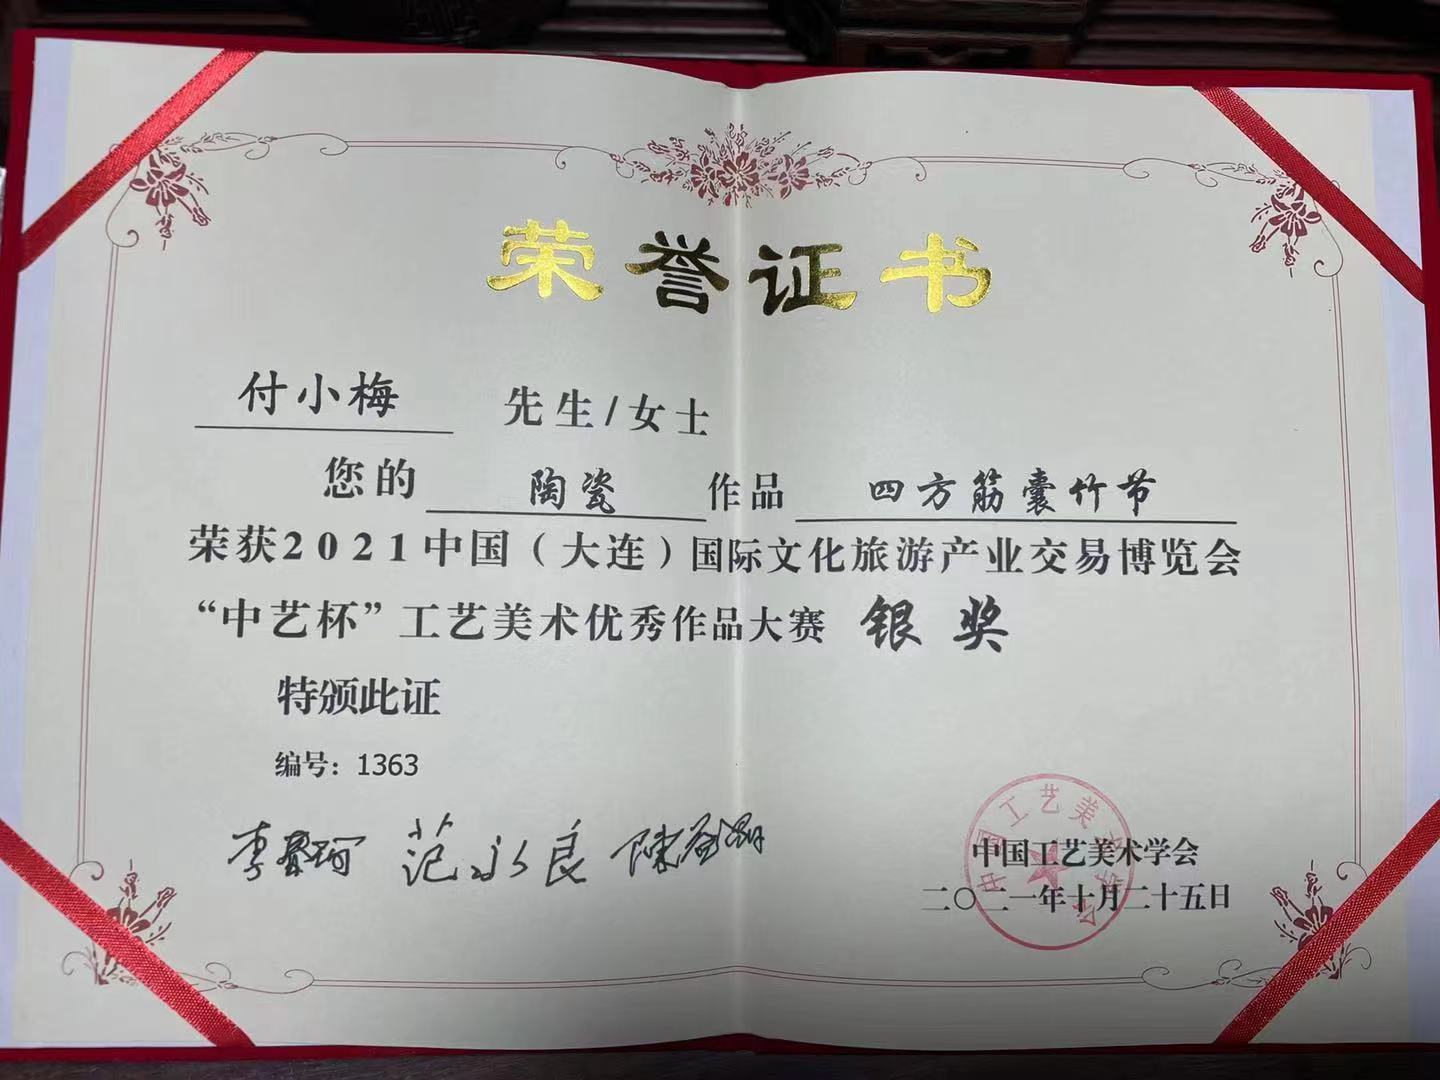 荣誉证书
付小梅 先生/女士
您的 陶瓷 作品 四方筋囊竹节
荣获2021中国（大连）国际文化旅游产业交易博览会
“中艺杯”工艺美术优秀作品大赛 银奖
特颁此证
编号：1363
范永良
中国工艺美术学会
中国工艺美术学会
二〇二一年十月二十五日